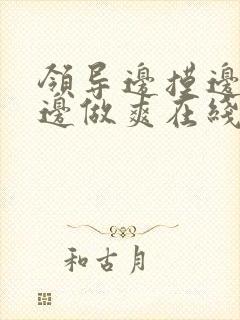 領导邊摸邊
邊做爽在綫
和古月